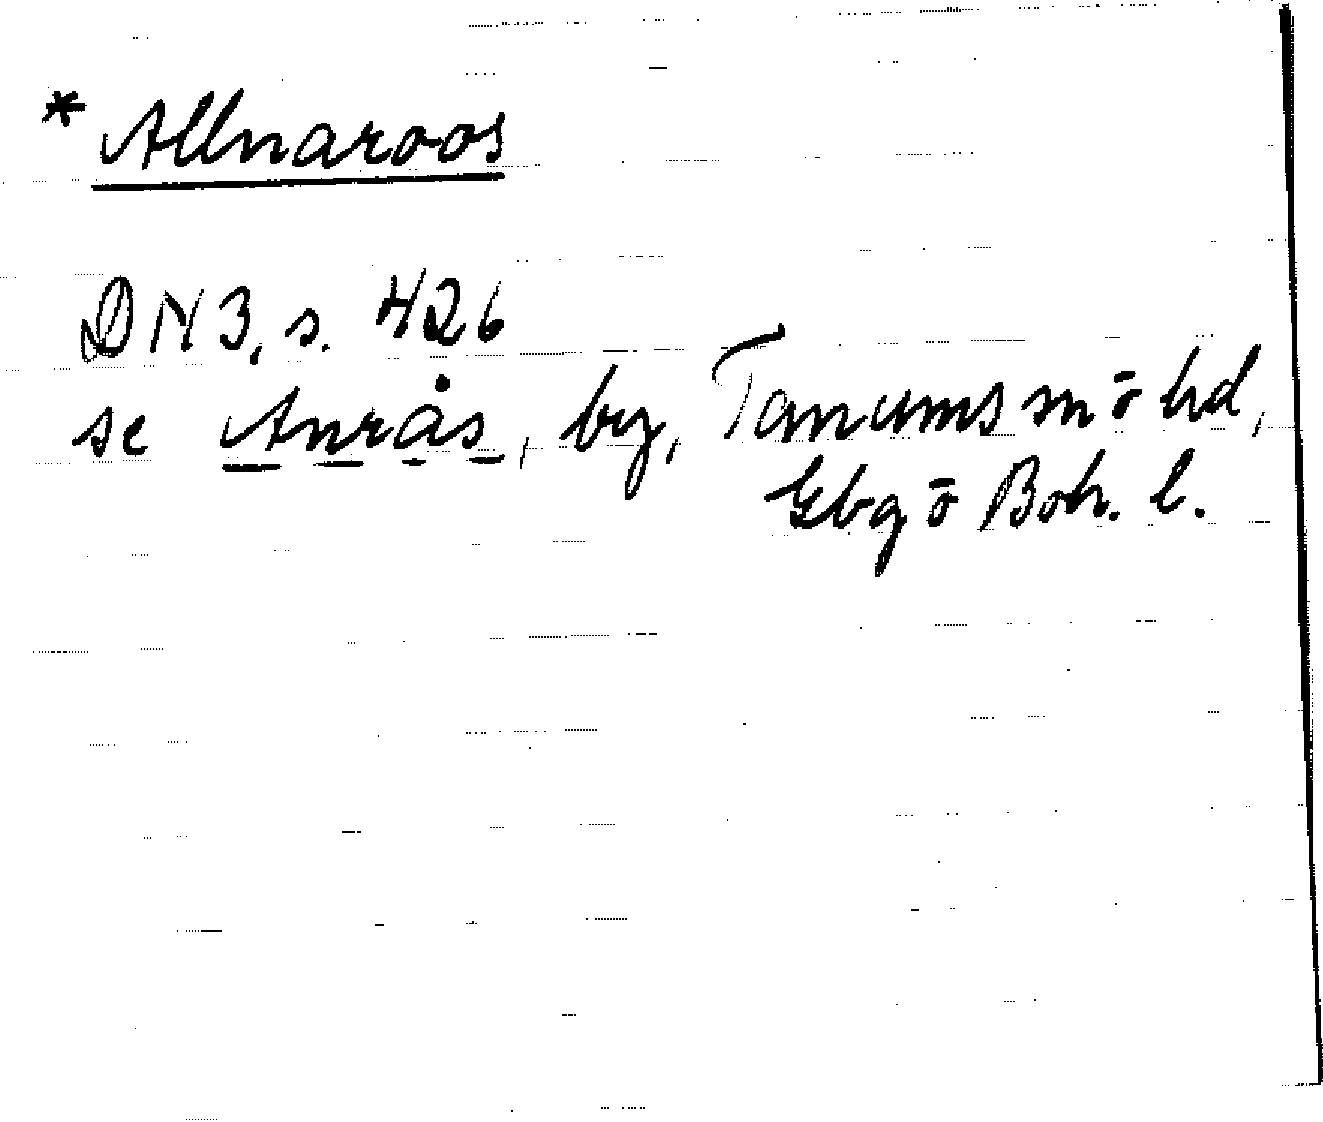 * Allnaroos
DN 3, s. 426
se Anrås, by, Tanums sn ō hd,
Gbg ō Boh. l.